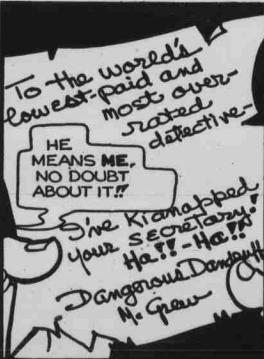 To the world's
lowest-paid and
most over-
rated
detective-
HE
MEANS ME,
NO DOUBT
ABOUT IT!!
I've Kidnapped
your secretary!
Ha!!-Ha!!
Dangerous Dan
McGrew